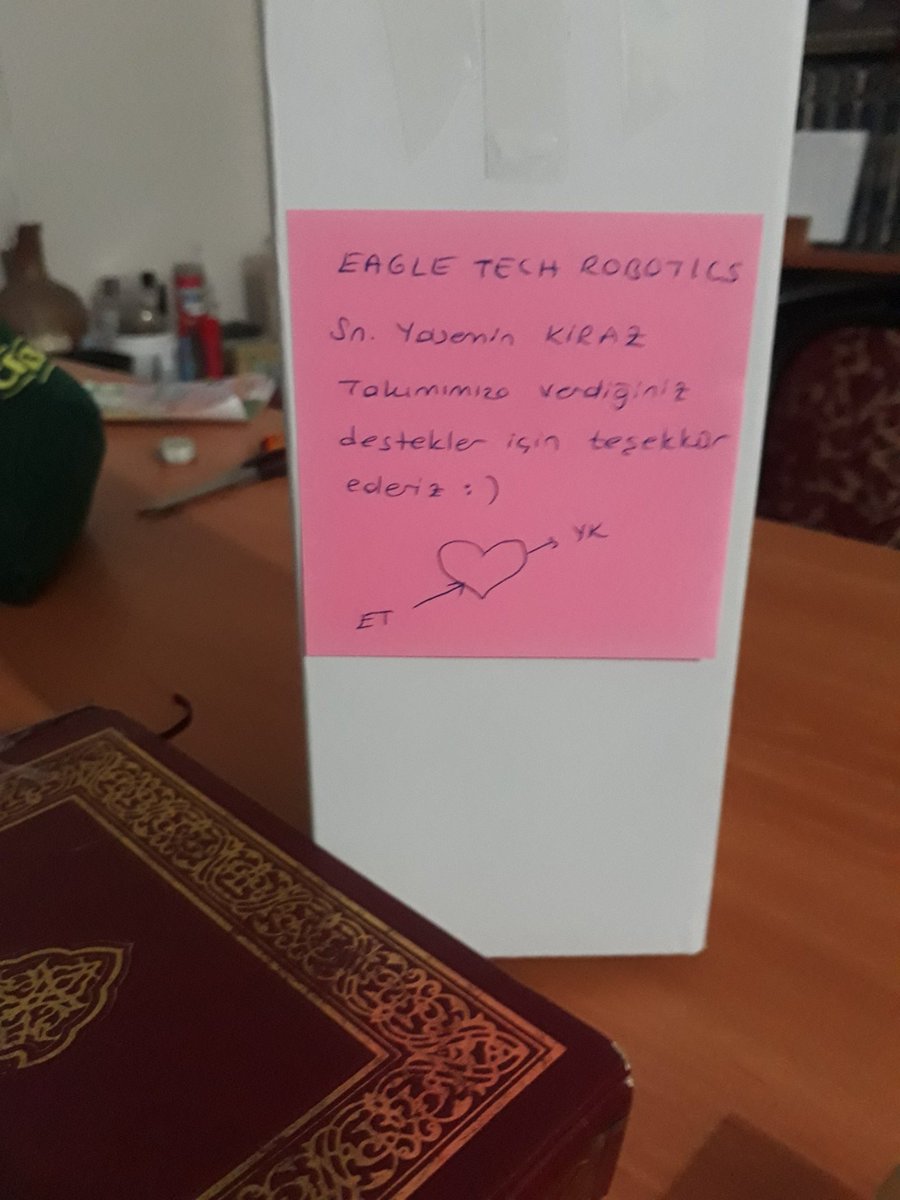 EAGLE TECH ROBOTICS
Sn. Yasemin KİRAZ
Takımımıza verdiğiniz
destekler için teşekkür
ederiz :)
YK
ET